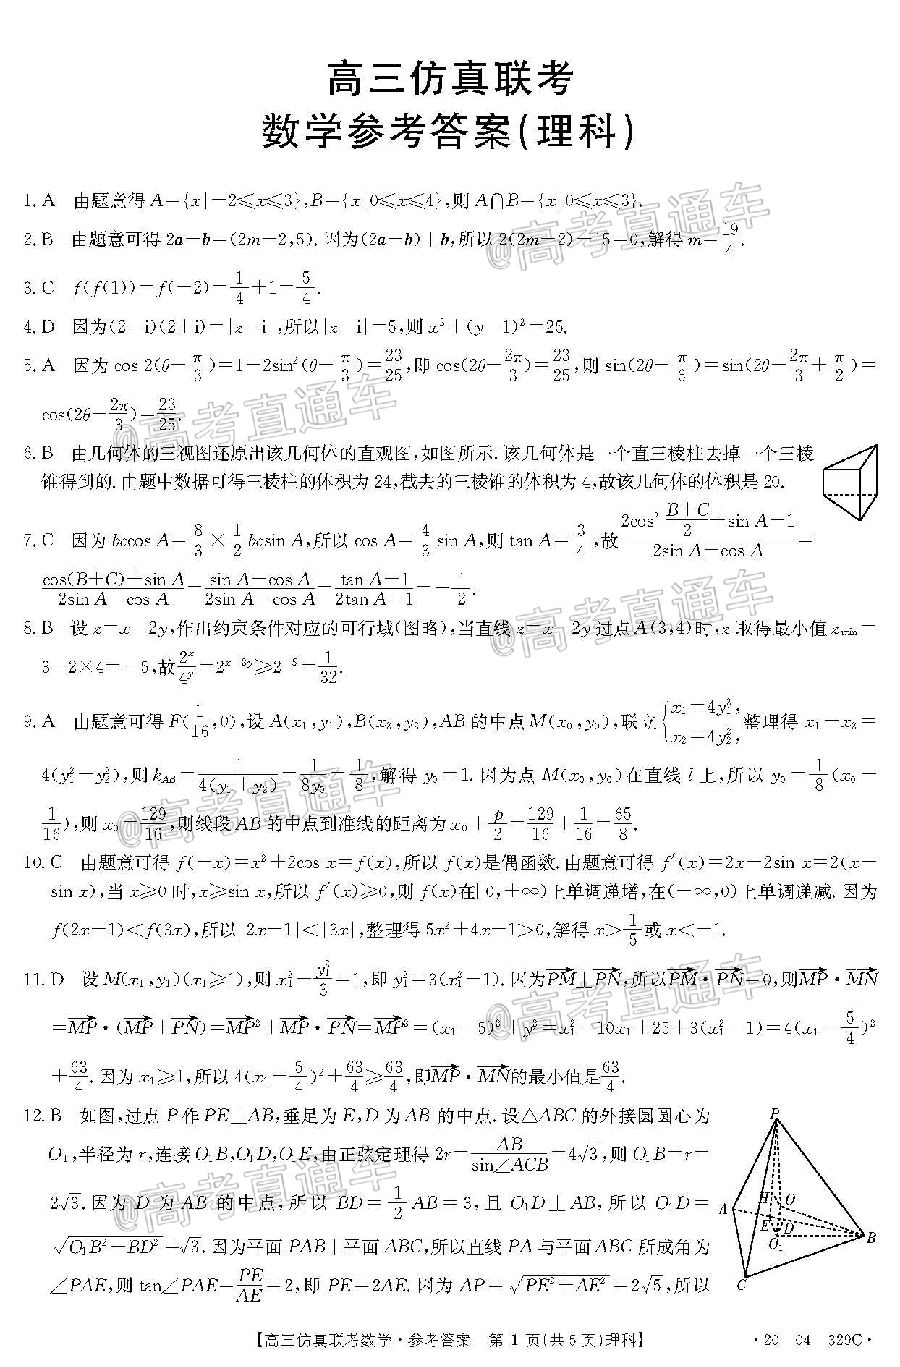 高三仿真联考
数学参考答案(理科)
1. A 由题意得 A={x|-2≤x≤3},B={x|0≤x≤4},则 A∩B={x|0≤x≤3}.
2. B 由题意可得 2a-b=(2m-2,5). 因为(2a-b)⊥b,所以 2(2m-2)-15=0,解得 m=19/4.
3. C f(f(1))=f(-2)=1/4+1=5/4.
4. D 因为(2-i)(2+i)=|z-i|,所以|z-i|=5,则 x²+(y-1)²=25.
5. A 因为 cos 2(θ-π/3)=1-2sin²(θ-π/3)=23/25,即 cos(2θ-2π/3)=23/25,则 sin(2θ-π/6)=sin(2θ-2π/3+π/2)=
cos(2θ-2π/3)=23/25.
6. B 由几何体的三视图还原出该几何体的直观图,如图所示. 该几何体是一个直三棱柱去掉一个三棱
锥得到的. 由题中数据可得三棱柱的体积为 24,截去的三棱锥的体积为 4,故该几何体的体积是 20.
7. C 因为 bccos A=8/3×1/2 bcsin A,所以 cos A=4/3 sin A,则 tan A=3/4,故 (2cos² (B+C)/2-sin A-1)/(2sin A-cos A)=
(cos(B+C)-sin A)/(2sin A-cos A)=(-sin A-cos A)/(2sin A-cos A)=(-tan A-1)/(2tan A-1)=-7/2.
8. B 设 z=x-2y,作出约束条件对应的可行域(图略),当直线 z=x-2y 过点 A(3,4)时,z 取得最小值 zmin=
3-2×4=-5,故 2ˣ/4ʸ=2ˣ⁻²ʸ≥2⁻⁵=1/32.
9. A 由题意可得 F(1/16,0),设 A(x₁,y₁),B(x₂,y₂),AB 的中点 M(x₀,y₀),联立{x₁=4y₁², x₂=4y₂², 整理得 x₁-x₂=
4(y₁²-y₂²),则 kAB=1/(4(y₁+y₂))=1/(8y₀)=1/8,解得 y₀=1. 因为点 M(x₀,y₀)在直线 l 上,所以 y₀=1/8(x₀-
1/16),则 x₀=129/16,则线段 AB 的中点到准线的距离为 x₀+p/2=129/16+1/16=65/8.
10. C 由题意可得 f(-x)=x²+2cos x=f(x),所以 f(x)是偶函数. 由题意可得 f′(x)=2x-2sin x=2(x-
sin x),当 x≥0 时,x≥sin x,所以 f′(x)≥0,则 f(x)在[0,+∞)上单调递增,在(-∞,0)上单调递减. 因为
f(2x-1)<f(3x),所以|2x-1|<|3x|,整理得 5x²+4x-1>0,解得 x>1/5或 x<-1.
11. D 设 M(x₁,y₁)(x₁≥1),则 x₁²-y₁²/3=1,即 y₁²=3(x₁²-1). 因为PM⊥PN,所以PM·PN=0,则MP·MN
=MP·(MP+PN)=MP²+MP·PN=MP²=(x₁-5)²+y₁²=x₁²-10x₁+25+3(x₁²-1)=4(x₁-5/4)²
+63/4. 因为 x₁≥1,所以 4(x₁-5/4)²+63/4≥63/4,即MP·MN的最小值是63/4.
12. B 如图,过点 P 作 PE⊥AB,垂足为 E,D 为 AB 的中点. 设△ABC 的外接圆圆心为
O₁,半径为 r,连接 O₁B,O₁D,O₁E,由正弦定理得 2r=AB/sin∠ACB=4√3,则 O₁B=r=
2√3. 因为 D 为 AB 的中点,所以 BD=1/2 AB=3,且 O₁D⊥AB,所以 O₁D=
√(O₁B²-BD²)=√3. 因为平面 PAB⊥平面 ABC,所以直线 PA 与平面 ABC 所成角为
∠PAE,则 tan∠PAE=PE/AE=2,即 PE=2AE. 因为 AP=√(PE²+AE²)=2√5,所以
P
H
O
A
E
D
O₁
B
C
【高三仿真联考数学·参考答案 第 1 页(共 5 页)理科】
·20-04-329C·
@高考直通车
@高考直通车
@高考直通车
@高考直通车
@高考直通车
@高考直通车
@高考直通车